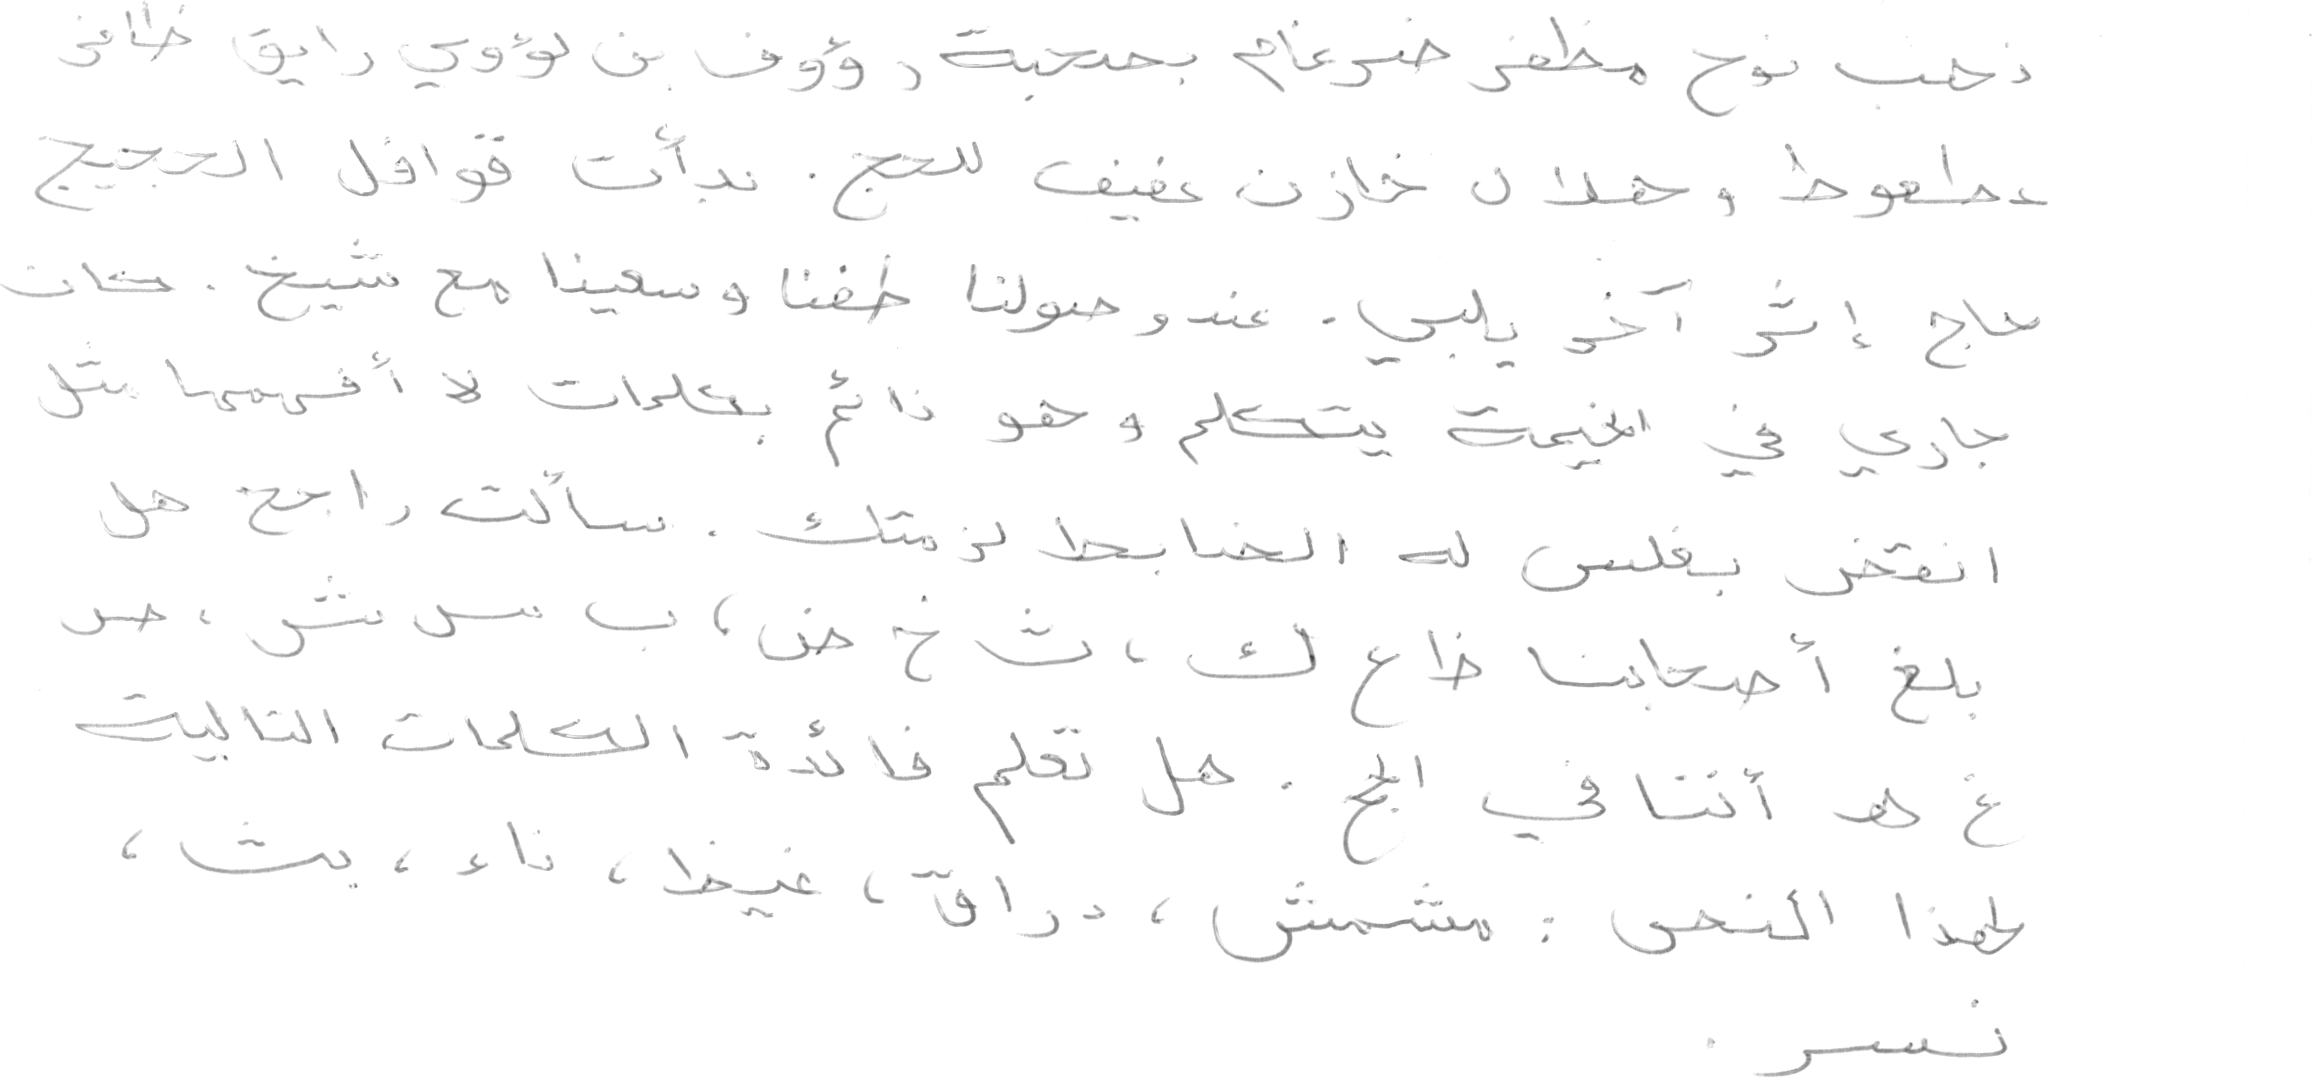 ذهب نوح مظفر ضرغام بصحبة رؤوف بن لؤوي رايق ظافر
عطعوط وهلال خازن عفيف للحج. بدأت قوافل الحجيج
حاج إثر آخر يلبي. عند وصولنا طفنا وسعينا مع شيخ. كان
جاري في الخيمة يتكلم وهو نائم بكلمات لا أفهمها مثل
انقض بغلس له الضابط لزمتك. سألت راجح هل
بلغ أصحابنا ظ اع ك، ث خ ض، ب س ش، ص
غ هـ أننا في الحج. هل تعلم فائدة الكلمات التالية
لهذا النص: مشمش، دراق، غيظ، ناء، بث،
نسر.